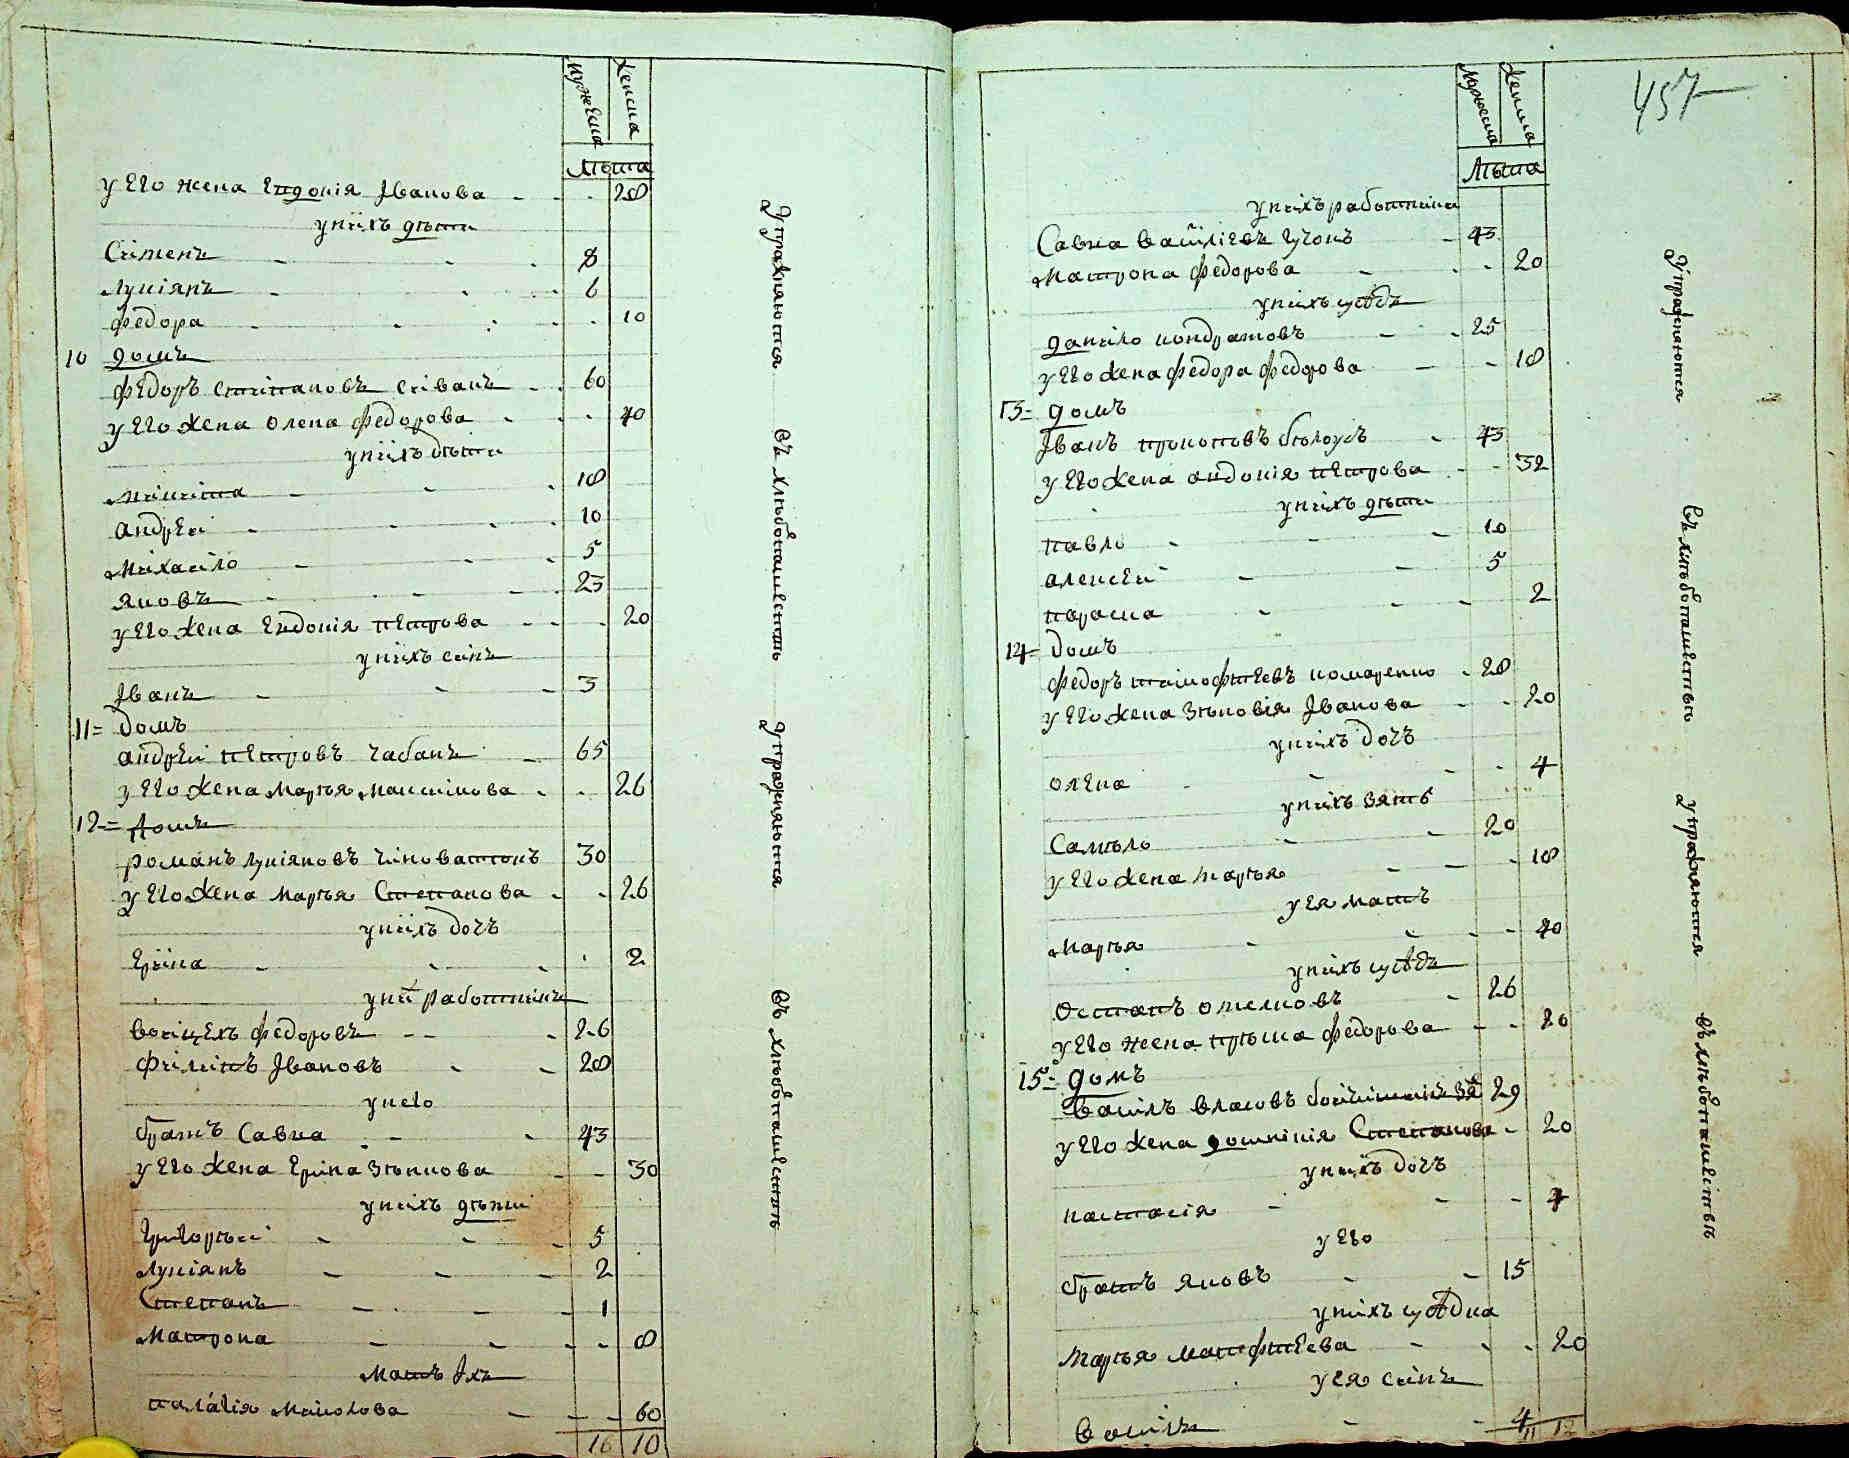 Мужеска
Женска
Лѣта
у его жена Евдокія Іванова 28
у нихъ дѣти
Сименъ 8
Лукіянъ 6
Федора 10
10 домъ
Федоръ Степановъ
60
у его жена Олена Федорова 40
у нихъ дѣти
Микита 18
Андрей 10
Михайло 5
Яковъ 23
у его жена Евдокія Петрова 20
у нихъ синъ
Іванъ 3
11= домъ
Андрей Петровъ Чабанъ 65
у его жена Марья Максимова 26
12= домъ
Романъ Лукіяновъ 30
у его жена Марья Степанова 26
у нихъ дочь
Ерина 2
у ных работники
Войцехъ Федоровъ 26
Филипъ Івановъ 28
у него
братъ Савка 43
у его жена Ерина 30
у нихъ дѣти
Григорѣй 5
Лукіянъ 2
Степанъ 1
Матрона 8
мать Іхъ
Палагія Миколова 60
16 10
Упражняются въ хлѣбопашествѣ
Упражняются въ хлѣбопашествѣ
457
Мужеска
Женска
Лѣта
у нихъ работники
Савка Василіевъ 43
Матрона Федорова 20
у нихъ сусѣдъ
Данило Кондратовъ 25
у его жена Федора Федорова 18
13= домъ
Іванъ Прокоповъ Бѣлоусъ 43
у его жена Авдокія Петрова 32
у нихъ дѣти
Павло 10
Алексей 5
Параска 2
14= домъ
Федоръ Тимофѣевъ Комаренко 28
у его жена Зѣновія Іванова 20
у нихъ дочь
Олена 4
у нихъ зять
Самѣло 20
у его жена Марья 18
у ея мать
Марья 40
у нихъ сусѣдъ
Остапъ 26
у его жена Прѣска Федорова 20
15= домъ
Василь Власовъ 29
у его жена Домникія Степанова 20
у нихъ дочь
Настасія 4
у его
братъ Яковъ 15
у нихъ сусѣдка
Марья Матфѣева 20
у ея синъ
Василь 4
11 12
Упражняются въ хлѣбопашествѣ
Упражняются въ хлѣбопашествѣ